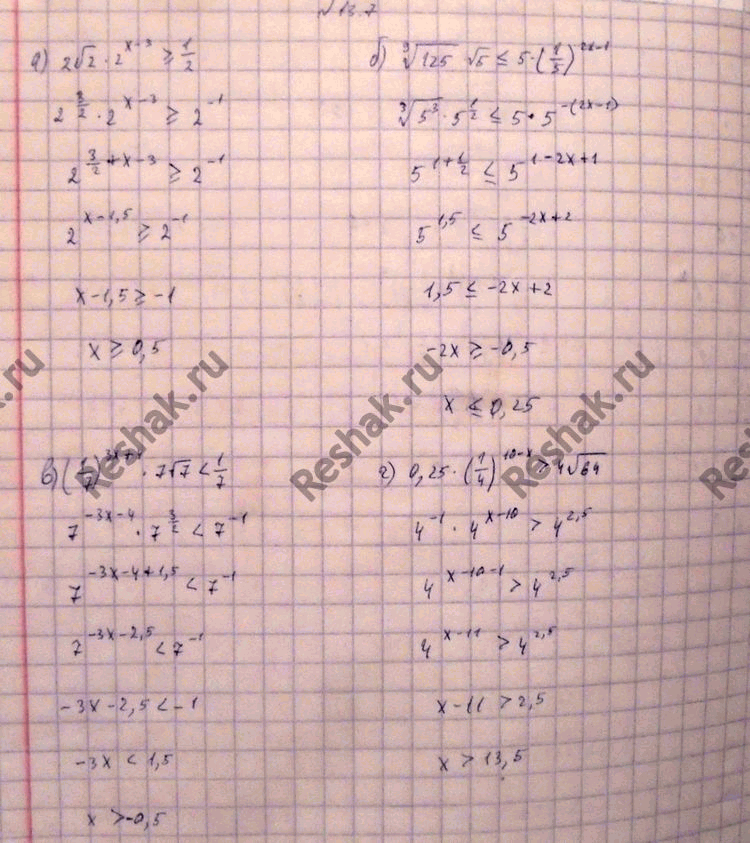 № 13.7
а) 2√2 · 2^(x-3) ≥ 1/2
2^(3/2) · 2^(x-3) ≥ 2^(-1)
2^(3/2+x-3) ≥ 2^(-1)
2^(x-1,5) ≥ 2^(-1)
x-1,5 ≥ -1
x ≥ 0,5
б) ∛125 · √5 ≤ 5 · (1/5)^(2x-1)
∛5³ · 5^(1/2) ≤ 5 · 5^(-(2x-1))
5^(1+1/2) ≤ 5^(1-2x+1)
5^(1,5) ≤ 5^(-2x+2)
1,5 ≤ -2x+2
-2x ≥ -0,5
x ≤ 0,25
в) (1/7)^(3x+4) · 7√7 < 1/7
7^(-3x-4) · 7^(3/2) < 7^(-1)
7^(-3x-4+1,5) < 7^(-1)
7^(-3x-2,5) < 7^(-1)
-3x-2,5 < -1
-3x < 1,5
x > -0,5
г) 0,25 · (1/4)^(10-x) > 4√64
4^(-1) · 4^(x-10) > 4^(2,5)
4^(x-10-1) > 4^(2,5)
4^(x-11) > 4^(2,5)
x-11 > 2,5
x > 13,5
Reshak.ru
Reshak.ru
Reshak.ru
Reshak.ru